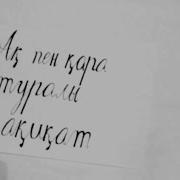 Ақ пен қара
туралы
ақиқат